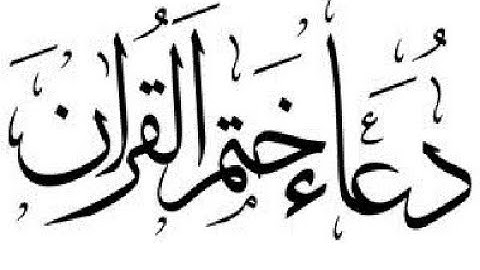 دُعَاء ختم القُرآن